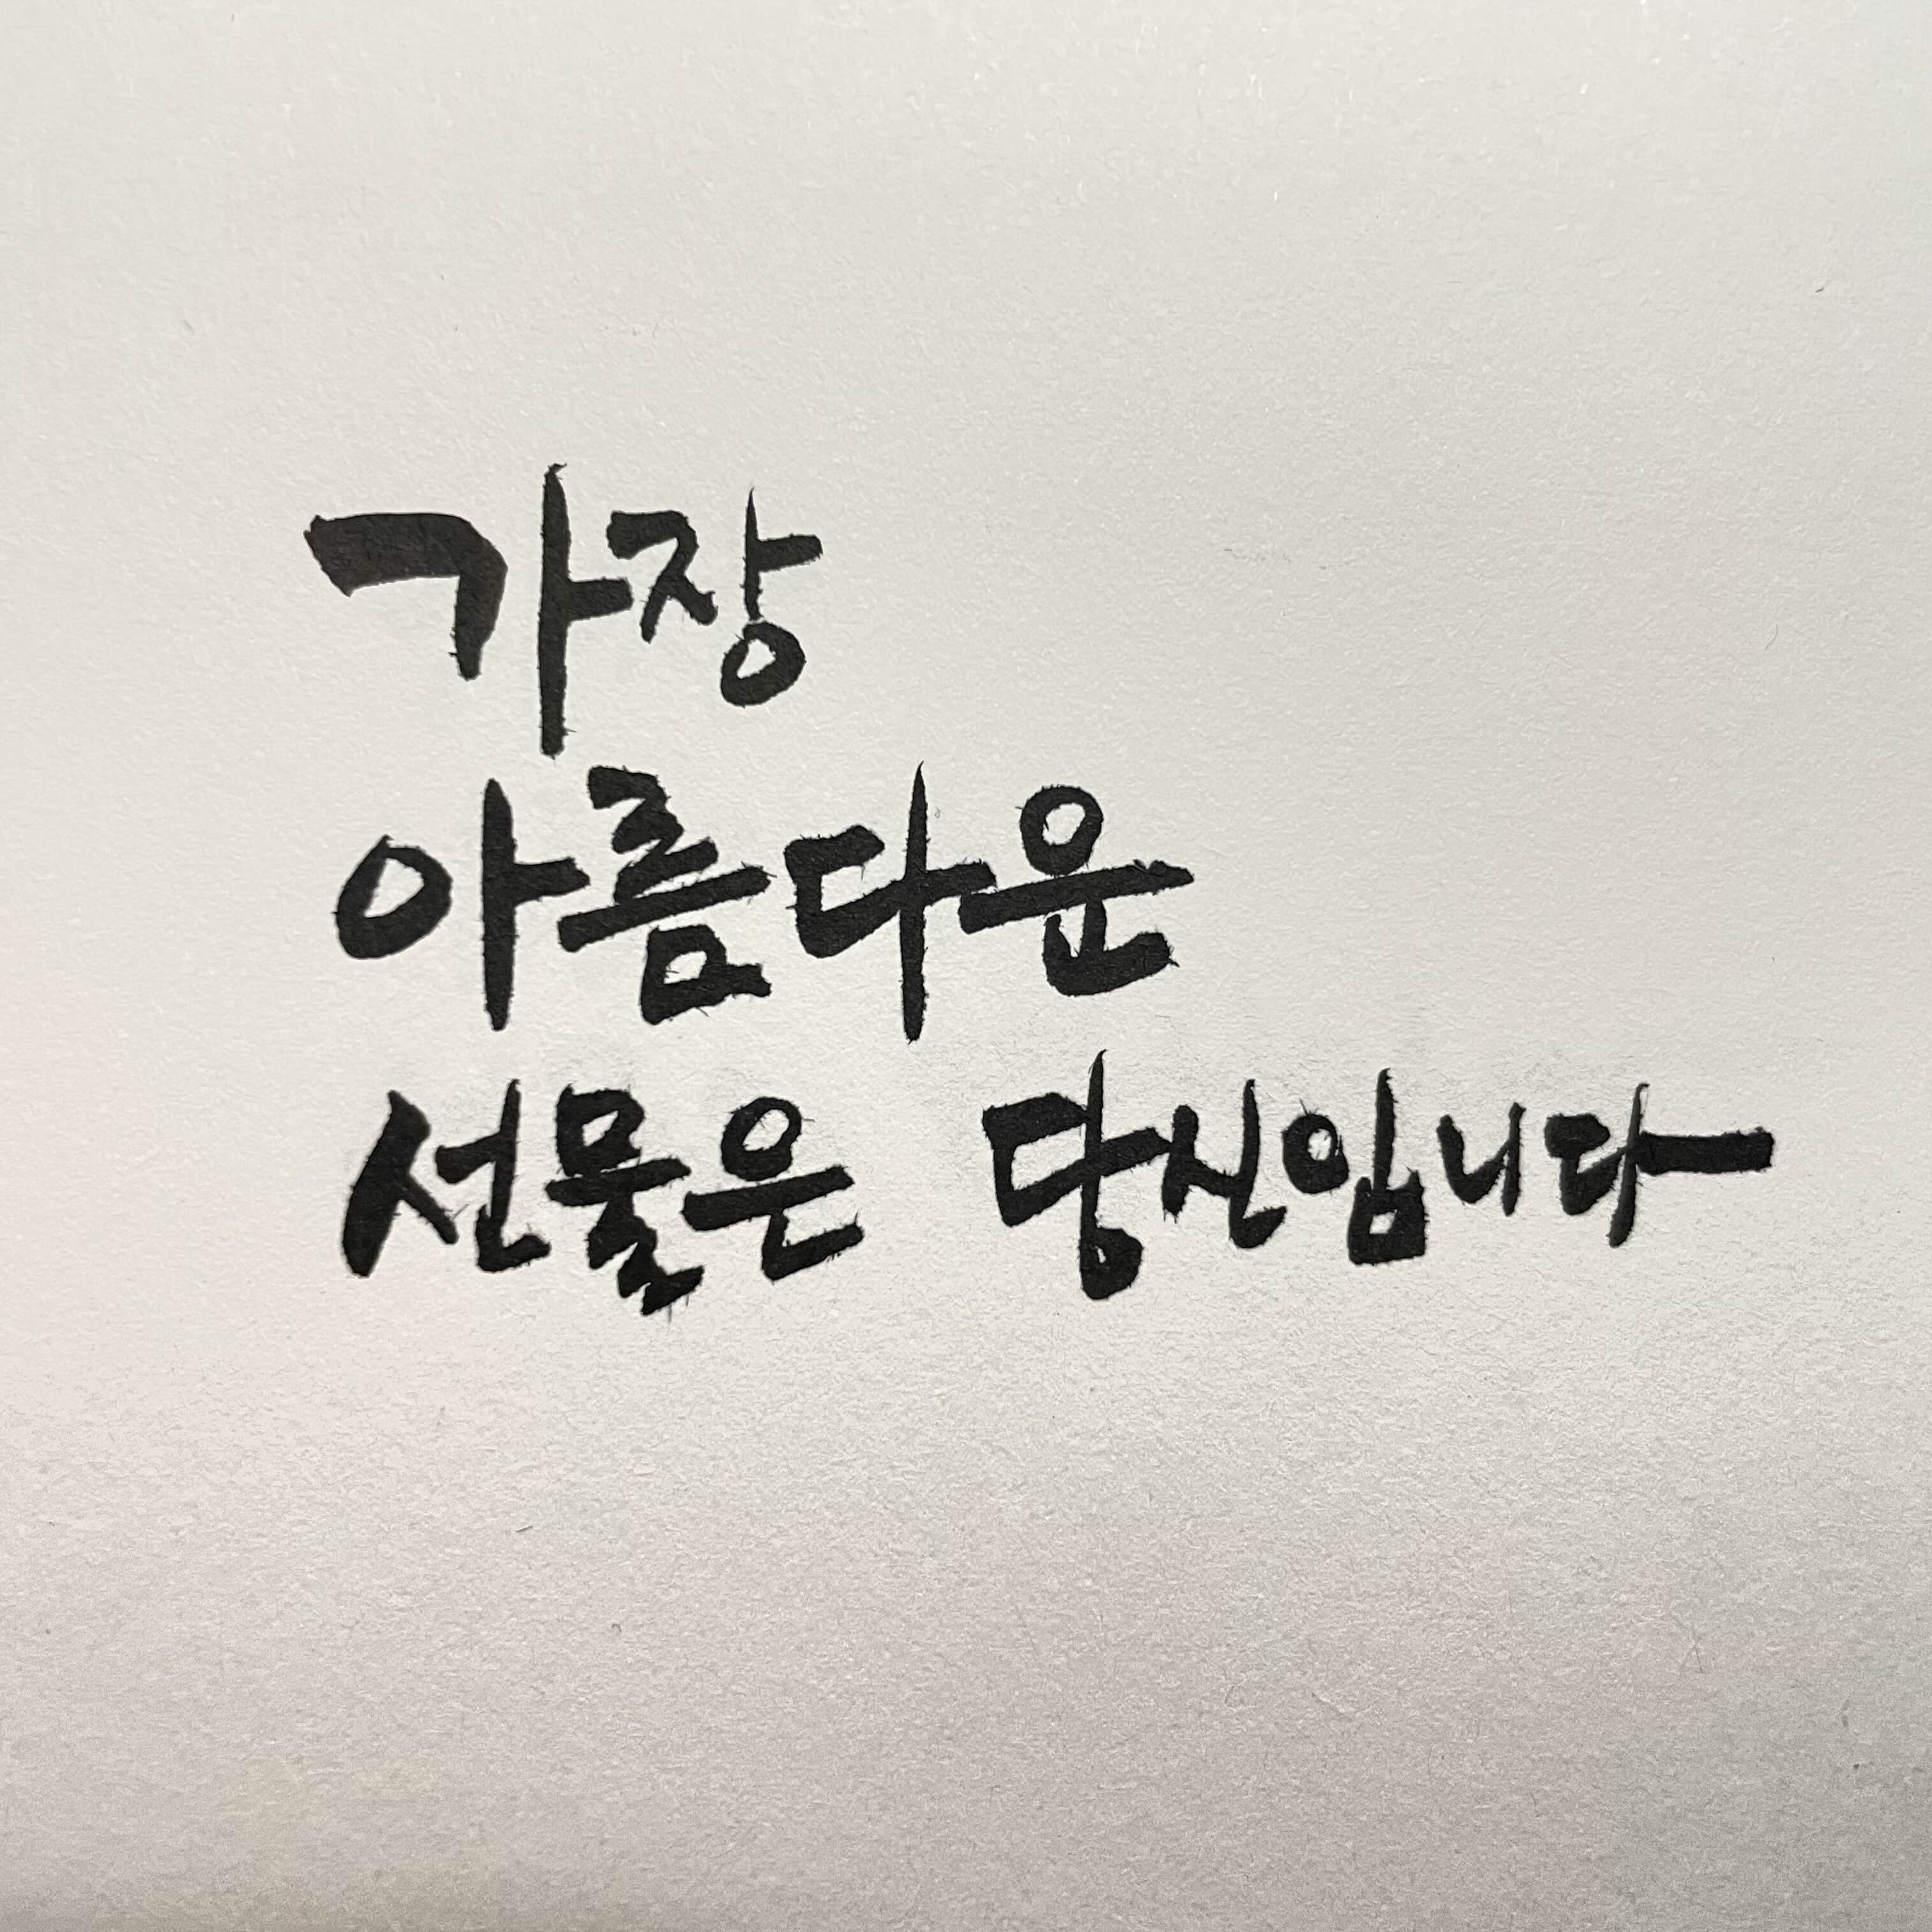 가장
아름다운
선물은 당신입니다